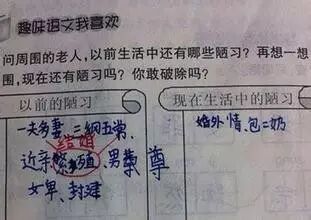 趣味语文我喜欢
问周围的老人，以前生活中还有哪些陋习？再想一想
围，现在还有陋习吗？你敢破除吗？
以前的陋习
一夫多妻、三纲五常、
结婚
近亲繁殖、男尊
尊
女卑、封建
现在生活中的陋习
婚外情、包二奶